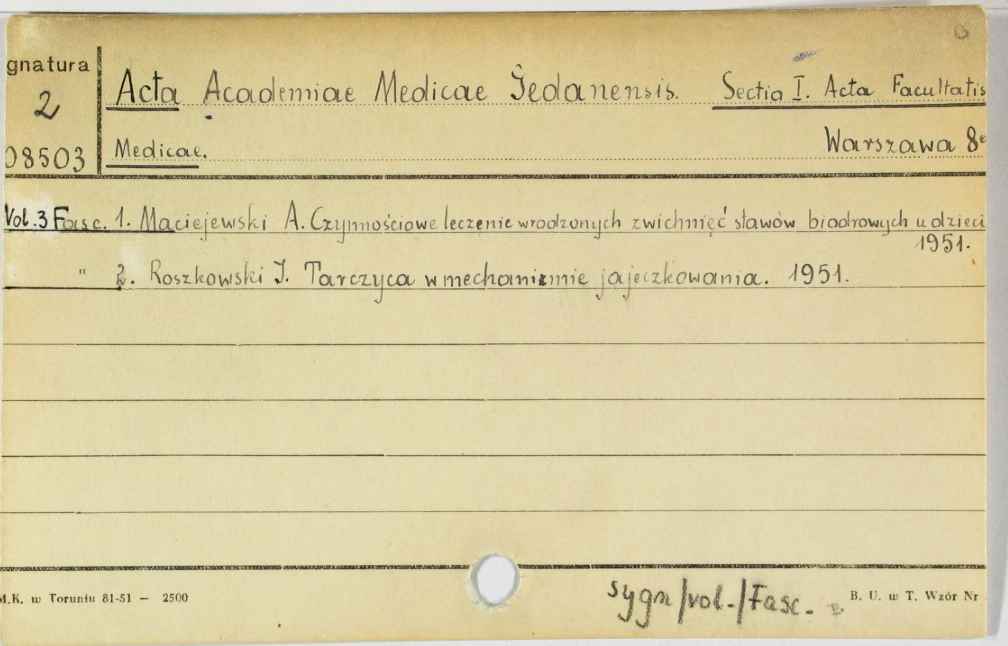 gnatura
2
08503
Acta Academiae Medicae Gedanensis. Sectio I. Acta Facultatis
Medicae. Warszawa 8°
Vol. 3 Fasc. 1. Maciejewski A. Czynnościowe leczenie wrodzonych zwichnięć stawów biodrowych u dzieci
1951.
" 2. Roszkowski I. Tarczyca w mechanizmie jajeczkowania. 1951.
sygn/vol./Fasc.
M.K. w Toruniu 81-51 — 2500
B. U. w T. Wzór Nr